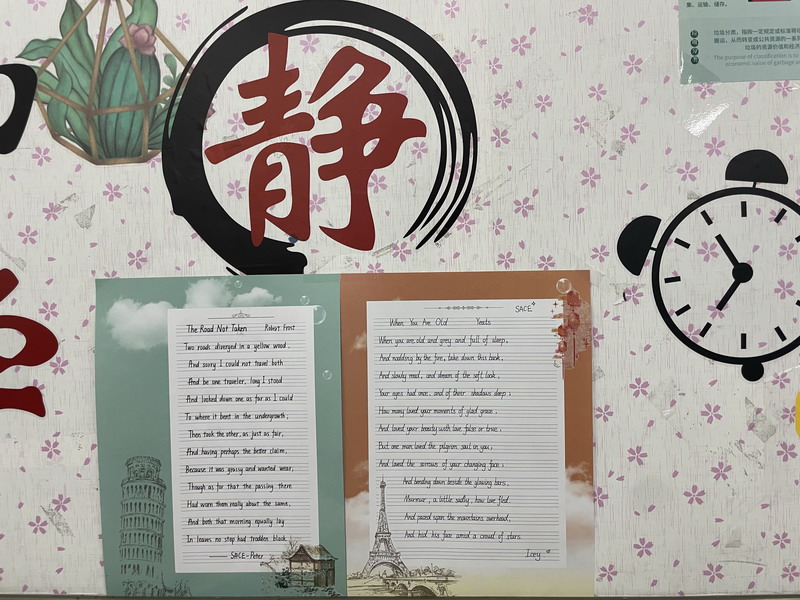 静
集、运输、储存。
垃圾分类，指按一定规定或标准将垃
搬运，从而转变成公共资源的一系列
垃圾的资源价值和经济
The purpose of classification is to
economic value of garbage a
The Road Not Taken Robert Frost
Two roads diverged in a yellow wood,
And sorry I could not travel both
And be one traveler, long I stood
And looked down one as far as I could
To where it bent in the undergrowth;
Then took the other, as just as fair,
And having perhaps the better claim,
Because it was grassy and wanted wear;
Though as for that the passing there
Had worn them really about the same,
And both that morning equally lay
In leaves no step had trodden black.
—— SACE-Peter
SACE
When You Are Old Yeats
When you are old and grey and full of sleep,
And nodding by the fire, take down this book,
And slowly read, and dream of the soft look,
Your eyes had once, and of their shadows deep;
How many loved your moments of glad grace,
And loved your beauty with love false or true,
But one man loved the pilgrim soul in you,
And loved the sorrows of your changing face;
And bending down beside the glowing bars,
Murmur, a little sadly, how love fled.
And paced upon the mountains overhead,
And hid his face amid a crowd of stars.
Icey